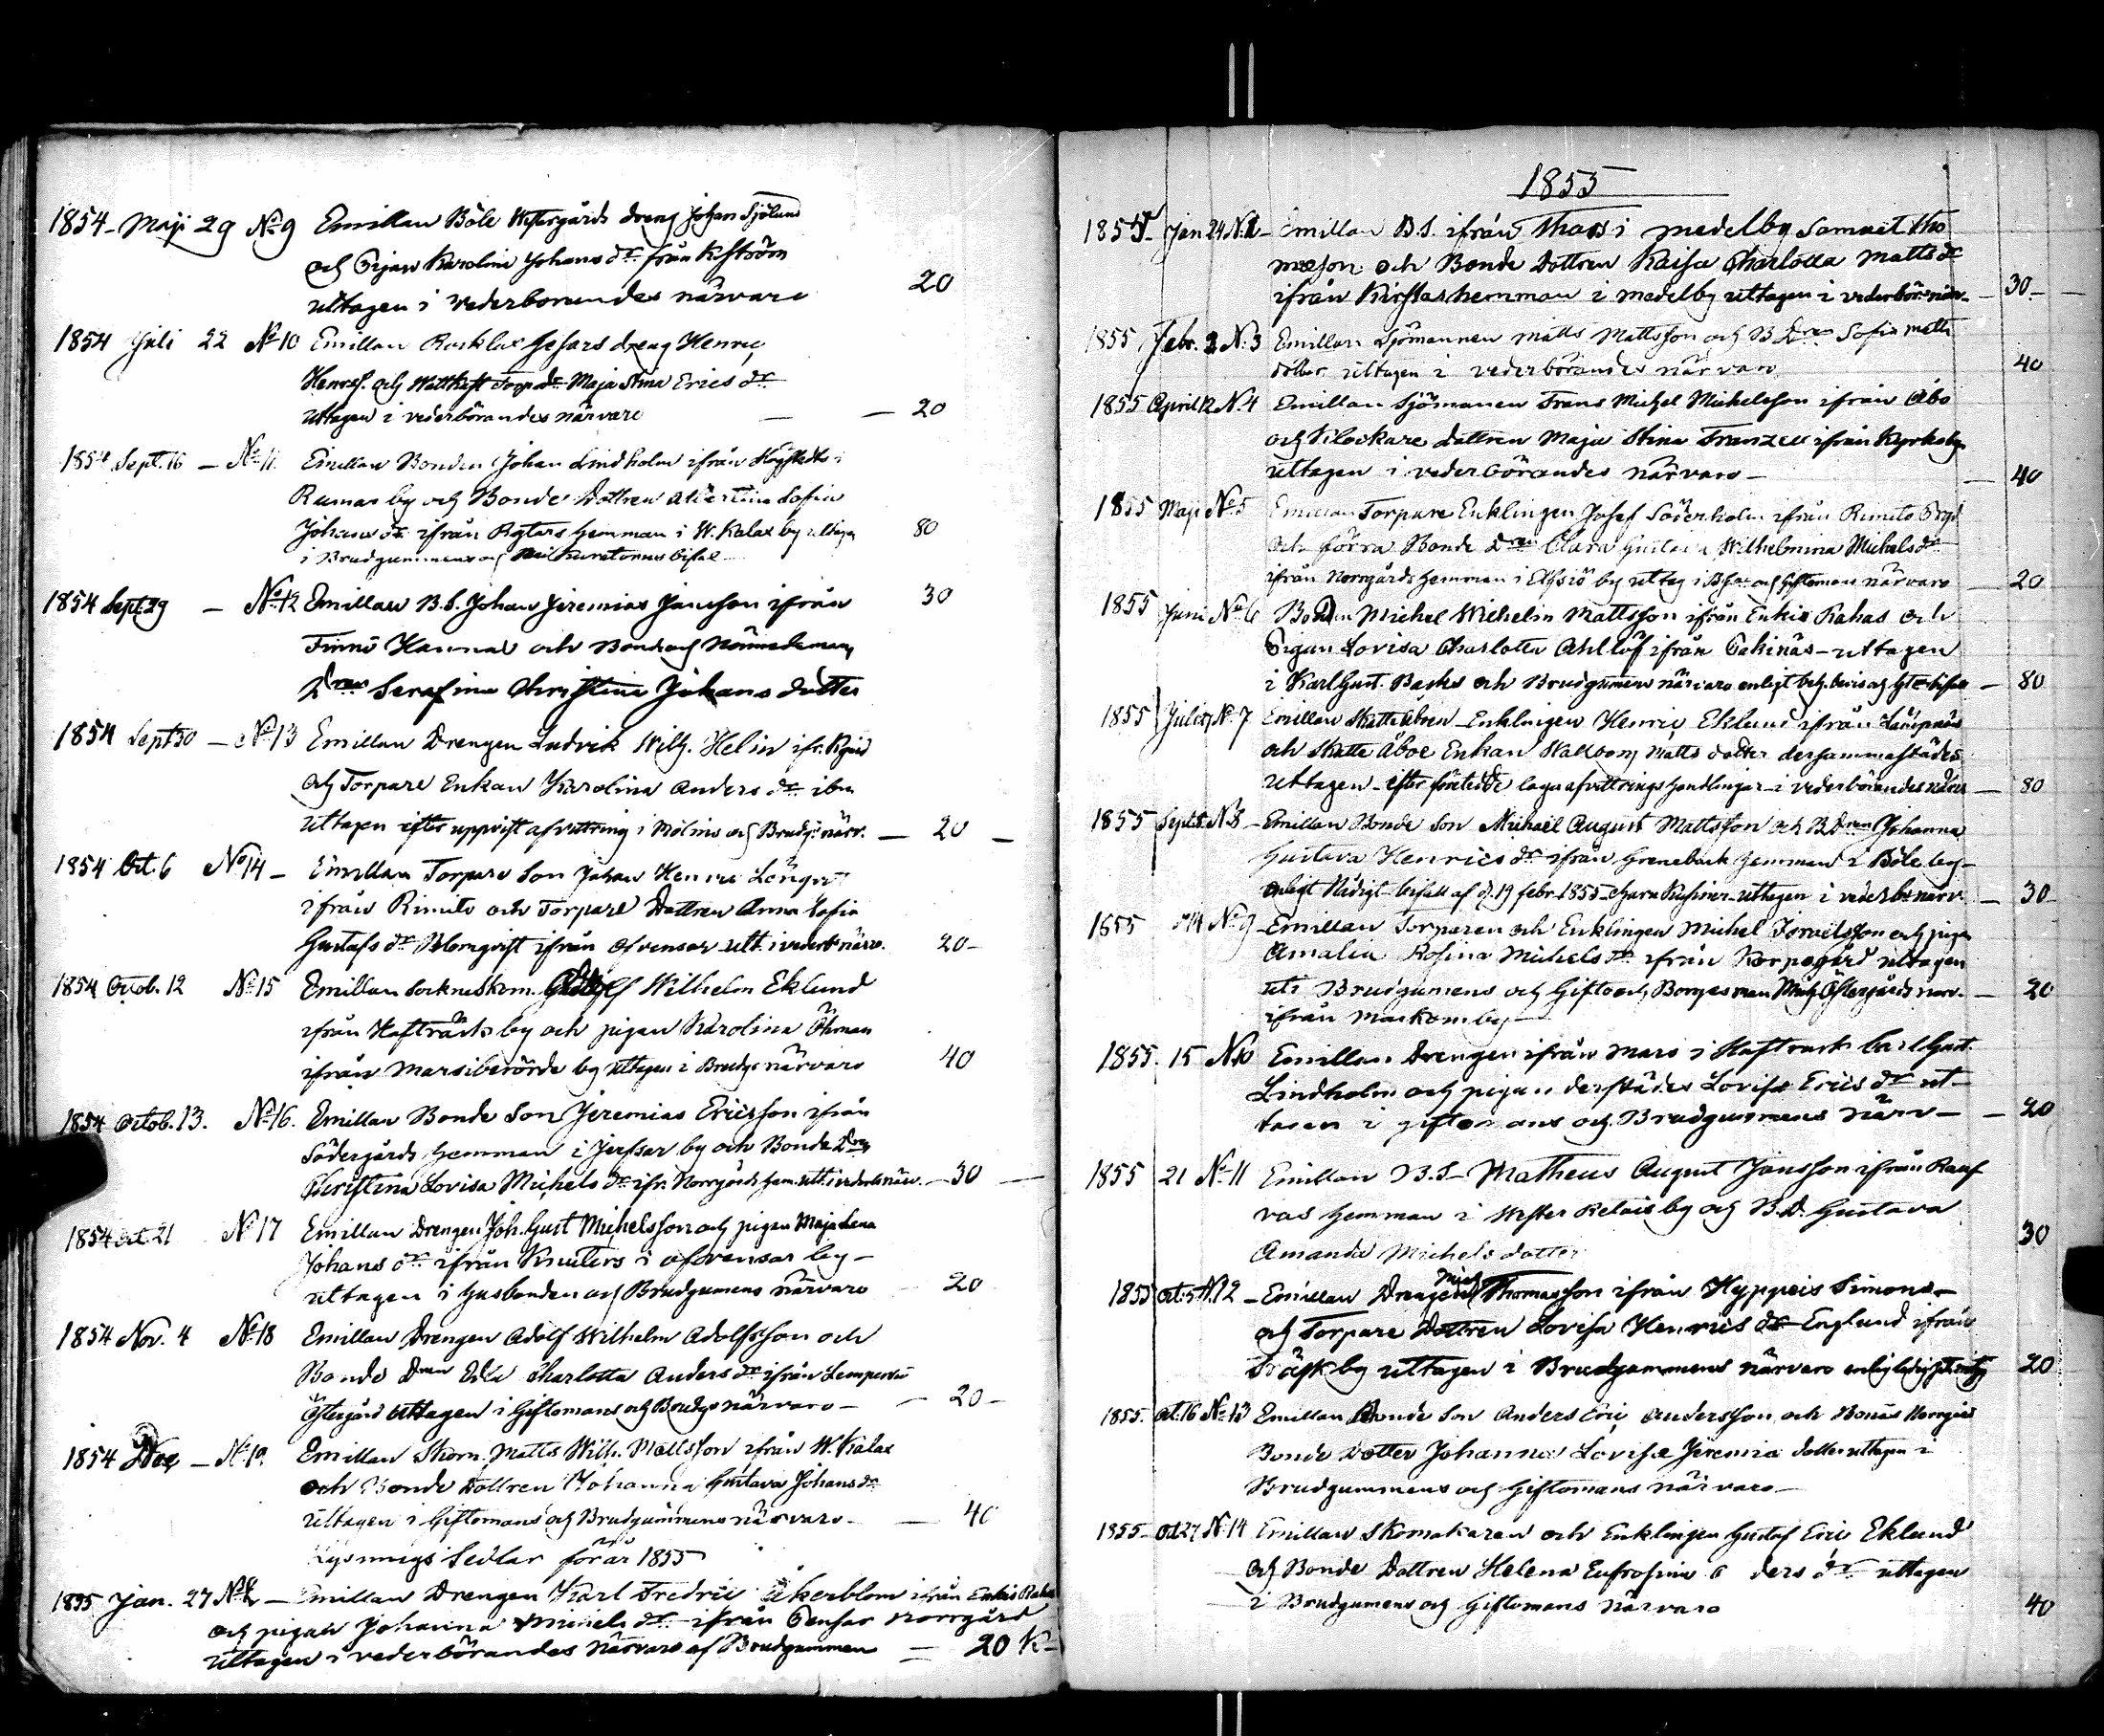 1854 Maji 29 No 9 Emillan Böle Westergårds dreng Johan Sjölund
och Pigan Karolina Johans dr från
uttagen i vederbörandes närvaro 20
1854 Juli 22 No 10 Emillan dreng Henric
Henrss. och Torp. dr Maja Stina Erics dr
uttagen i vederbörandes närvaro — 20
1854 Sept. 16 — No 11 Emillan Bonden Johan Lindholm ifrån
by och Bonde Dottren Albertina Sofia
Johans dr ifrån hemman i W. Kalax by uttagen 80
i Brudgummens och
1854 Sept 29 — No 12 Emillan B.S. Johan Jeremias Jansson ifrån 30
Finnö Hannas och Bonde och Nämndemans
Dren Serafina Christina Johans dotter
1854 Sept 30 — No 13 Emillan Drengen Ludvik Wilh. Helin ifr.
och Torpare Enkan Karolina Anders dr ibm
uttagen efter uppvist afvittring i och Brudg. närv. — 20 —
1854 Oct. 6 No 14 — Emillan Torpare Son Johan Henric Lönqvist
ifrån Rimito och Torpare Dottren Anna Sofia
Gustafs dr Blomqvist ifrån Ofvensor utt. i vederb närv. 20 —
1854 Octob. 12 No 15 Emillan Sockneskom. Wilhelm Eklund
ifrån Hafträsk by och pigan Karolina Öhman
ifrån by uttagen i Brudgs närvaro 40
1854 Octob. 13. No 16. Emillan Bonde Son Jeremias Ericsson ifrån
Södergårds hemman i Jerfsar by och Bonde Dren
Christina Lovisa Michels dr ifr. Norrgårds hem. utt. i vederb närv. — 30 —
1854 Oct 21 No 17 Emillan Drengen Joh. Gust Michelsson och pigan Maja Lena
Johans dr ifrån Knuters i Ofvensor by —
uttagen i husbonden och Brudgumens närvaro 20
1854 Nov. 4 No 18 Emillan Drengen Adolf Wilhelm Adolfsson och
Bonde Dren Edla Charlotta Anders dr ifrån
Östergård uttagen i Giftomans och Brudgs närvaro — 20 —
1854 — No 19 Emillan Skom. Matts Wilh. Mattsson ifrån W. Kalax
och Bonde Dottren Johanna Gustava Johans dr
uttagen i Giftomans och Brudgummens närvaro — 40
Lysnings Sedlar för år 1855
1855 Jan. 27 No — Emillan Drengen Karl Fredric Åkerblom ifrån Enkis Rahas
och pigan Johanna Michels dr ifrån Pensar Norrgård
uttagen i vederbörandes närvaro af Brudgummen — 20 K —
1855
1855 Jan 24 N. — Emillan B.S. ifrån Thors i medelby Samuel Tho
masson och Bonde Dottren Kaisa Charlotta Matts dr
ifrån hemman i medelby uttagen i vederbör. närv — 30 —
1855 Febr. N. 3 Emillan Sjömannen Matts Mattsson och B Dren Sofia Matts
dotter uttagen i vederbörandes närvaro 40
1855 April 12 N. 4 Emillan Sjömannen Frans Michel Michelsson ifrån Åbo
och Klockare dottren Maja Stina Franzell ifrån Kyrkoby
uttagen i vederbörandes närvaro — 40
1855 Maji No 5 Emillan Torpare Enklingen Josef Söderholm ifrån Rimito
och förra Bonde Dren Clara Gustava Wilhelmina Michels dr
ifrån Norrgårds hemman i Elfsiö by uttag i och Giftoman närvaro 20
1855 Juni No 6 Bonden Michel Wilhelm Mattsson ifrån Enkis Rahas och
Pigan Lovisa Charlotta Ahllöf ifrån Pakinäs — uttagen
i Karl Gust. Backs och Brudgumens närvaro enligt — 80
1855 Juli No 7 Emillan Skatte Åboen Enklingen Henric Eklund ifrån
och Skatte Åboe Enkan Wallborg Matts dotter dersammastädes
uttagen — efter företedde laga afvittrings handlingar — i vederbörandes närv — 80
1855 Sept. N. 8 — Emillan Bonde Son Michaël August Mattsson och B Dren Johanna
Gustava Henrics dr ifrån Greneback hemman i Böle by —
enligt Nådigt bifall af d. 19 febr 1855 uttagen i vederb. närv. — 30 —
1855 No 9 — Emillan Torparen och Enklingen Michel Israelsson och pigan
Amalia Rosina Michels dr ifrån Korpogård uttagen
uti Brudgumens och Östergårds narv. — 20
ifrån Maskom by —
1855. 15 N. 10 Emillan Drengen ifrån Mars i Haftrask Carl Gust.
Lindholm och pigan derstädes Lovisa Erics dr ut —
tagen i giftomans och Brudgummens närv — 20
1855 21 No 11 Emillan B.S. — Matheus August Jansson ifrån
hemman i Wester Retais by och B.D. Gustava
Amanda Michels dotter 30
1855 Oct. 5 N. 12 — Emillan Drengen Mich Thomasson ifrån Hyppeis Simons —
och Torpare Dottren Lovisa Henrics dr Englund ifrån
Träsk by uttagen i Brudgummens närvaro 20
1855. Oct. 16 No 13 Emillan Bonde Son Anders Eric Andersson och Norrgård
Bonde Dotter Johanna Lovisa Jeremia dotter uttagen i
Brudgummens och Giftomans närvaro —
1855 — Oct 27 N. 14 Emillan Skomakaren och Enklingen Gustaf Eric Eklund
och Bonde Dottren Helena Eufrosina ders dr uttagen
i Brudgumens och Giftomans närvaro 40